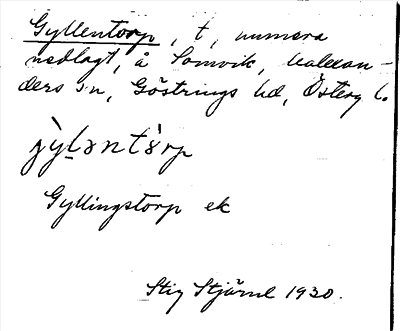 Gyllentorp, t, numera
nedlagt, å Somvik, Valkan-
ders s:n, Göstrings hd, Östergl.
jỳləntòrp
Gyllingstorp ek
Stig Stjärne 1930.